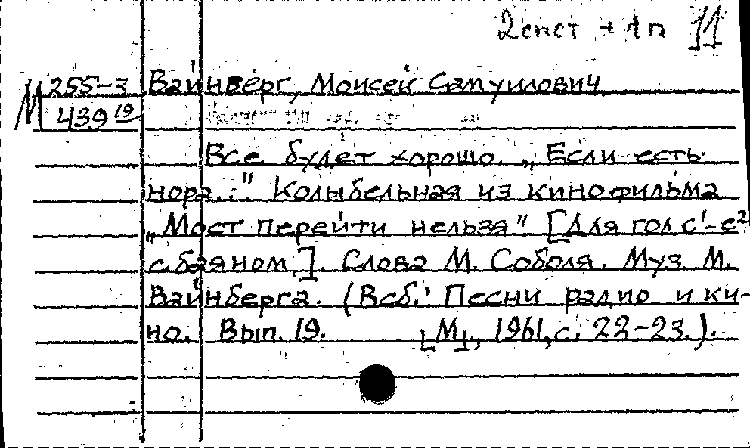 2 сист + 1 п 11
М 255-3 Вайнберг, Моисей Самуилович
439 19
Все будет хорошо. „Если есть
нора..." Колыбельная из кинофильма
„Мост перейти нельзя" [Для гол с¹-е²
с баяном]. Слова М. Соболя. Муз. М.
Вайнберга. (В сб.: Песни радио и ки-
но. Вып. 19. [М], 1961, с. 22-23.).